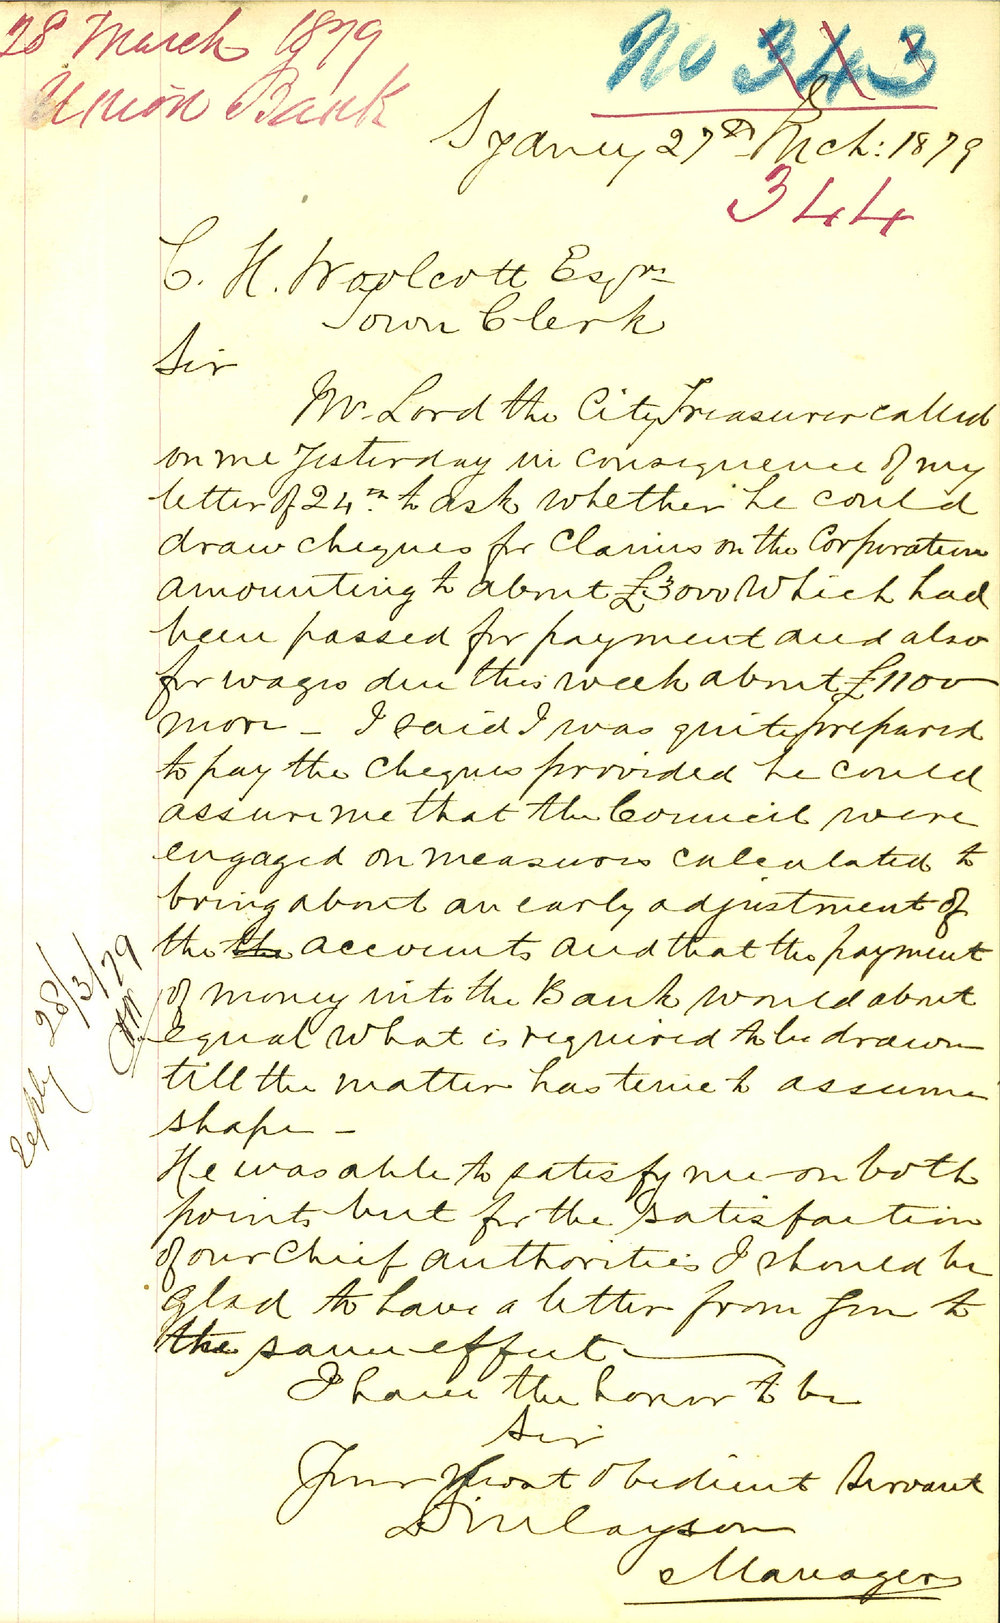 28 March 1879
Union Bank
No 343
Sydney 27th Mch: 1879
344
C. H. Woolcott Esqre
Town Clerk
Sir
Mr. Lord the City Treasurer called
on me yesterday in consequence of my
letter of 24th to ask whether he could
draw cheques for Claims on the Corporation
amounting to about £3000 which had
been passed for payment and also
for wages due this week about £1100
more - I said I was quite prepared
to pay the cheques provided he could
assure me that the Council were
engaged on measures calculated to
bring about an early adjustment of
the the accounts and that the payment
of money into the Bank would about
equal what is required to be drawn
till the matter has time to assume
shape -
He was able to satisfy me on both
points but for the satisfaction
of our Chief authorities I should be
glad to have a letter from you to
the same effect
I have the honor to be
Sir
Your Most Obedient Servant
Finlayson
Manager
reply 28/3/79